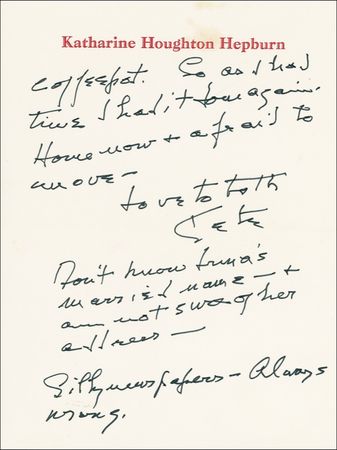 Katharine Houghton Hepburn
coffeepot. So as I had
time I had it done again.
Home now + afraid to
move —
Love to both
Kate
Don't know
married name — +
am not sure of her
address —
Silly newspapers — Always
wrong.